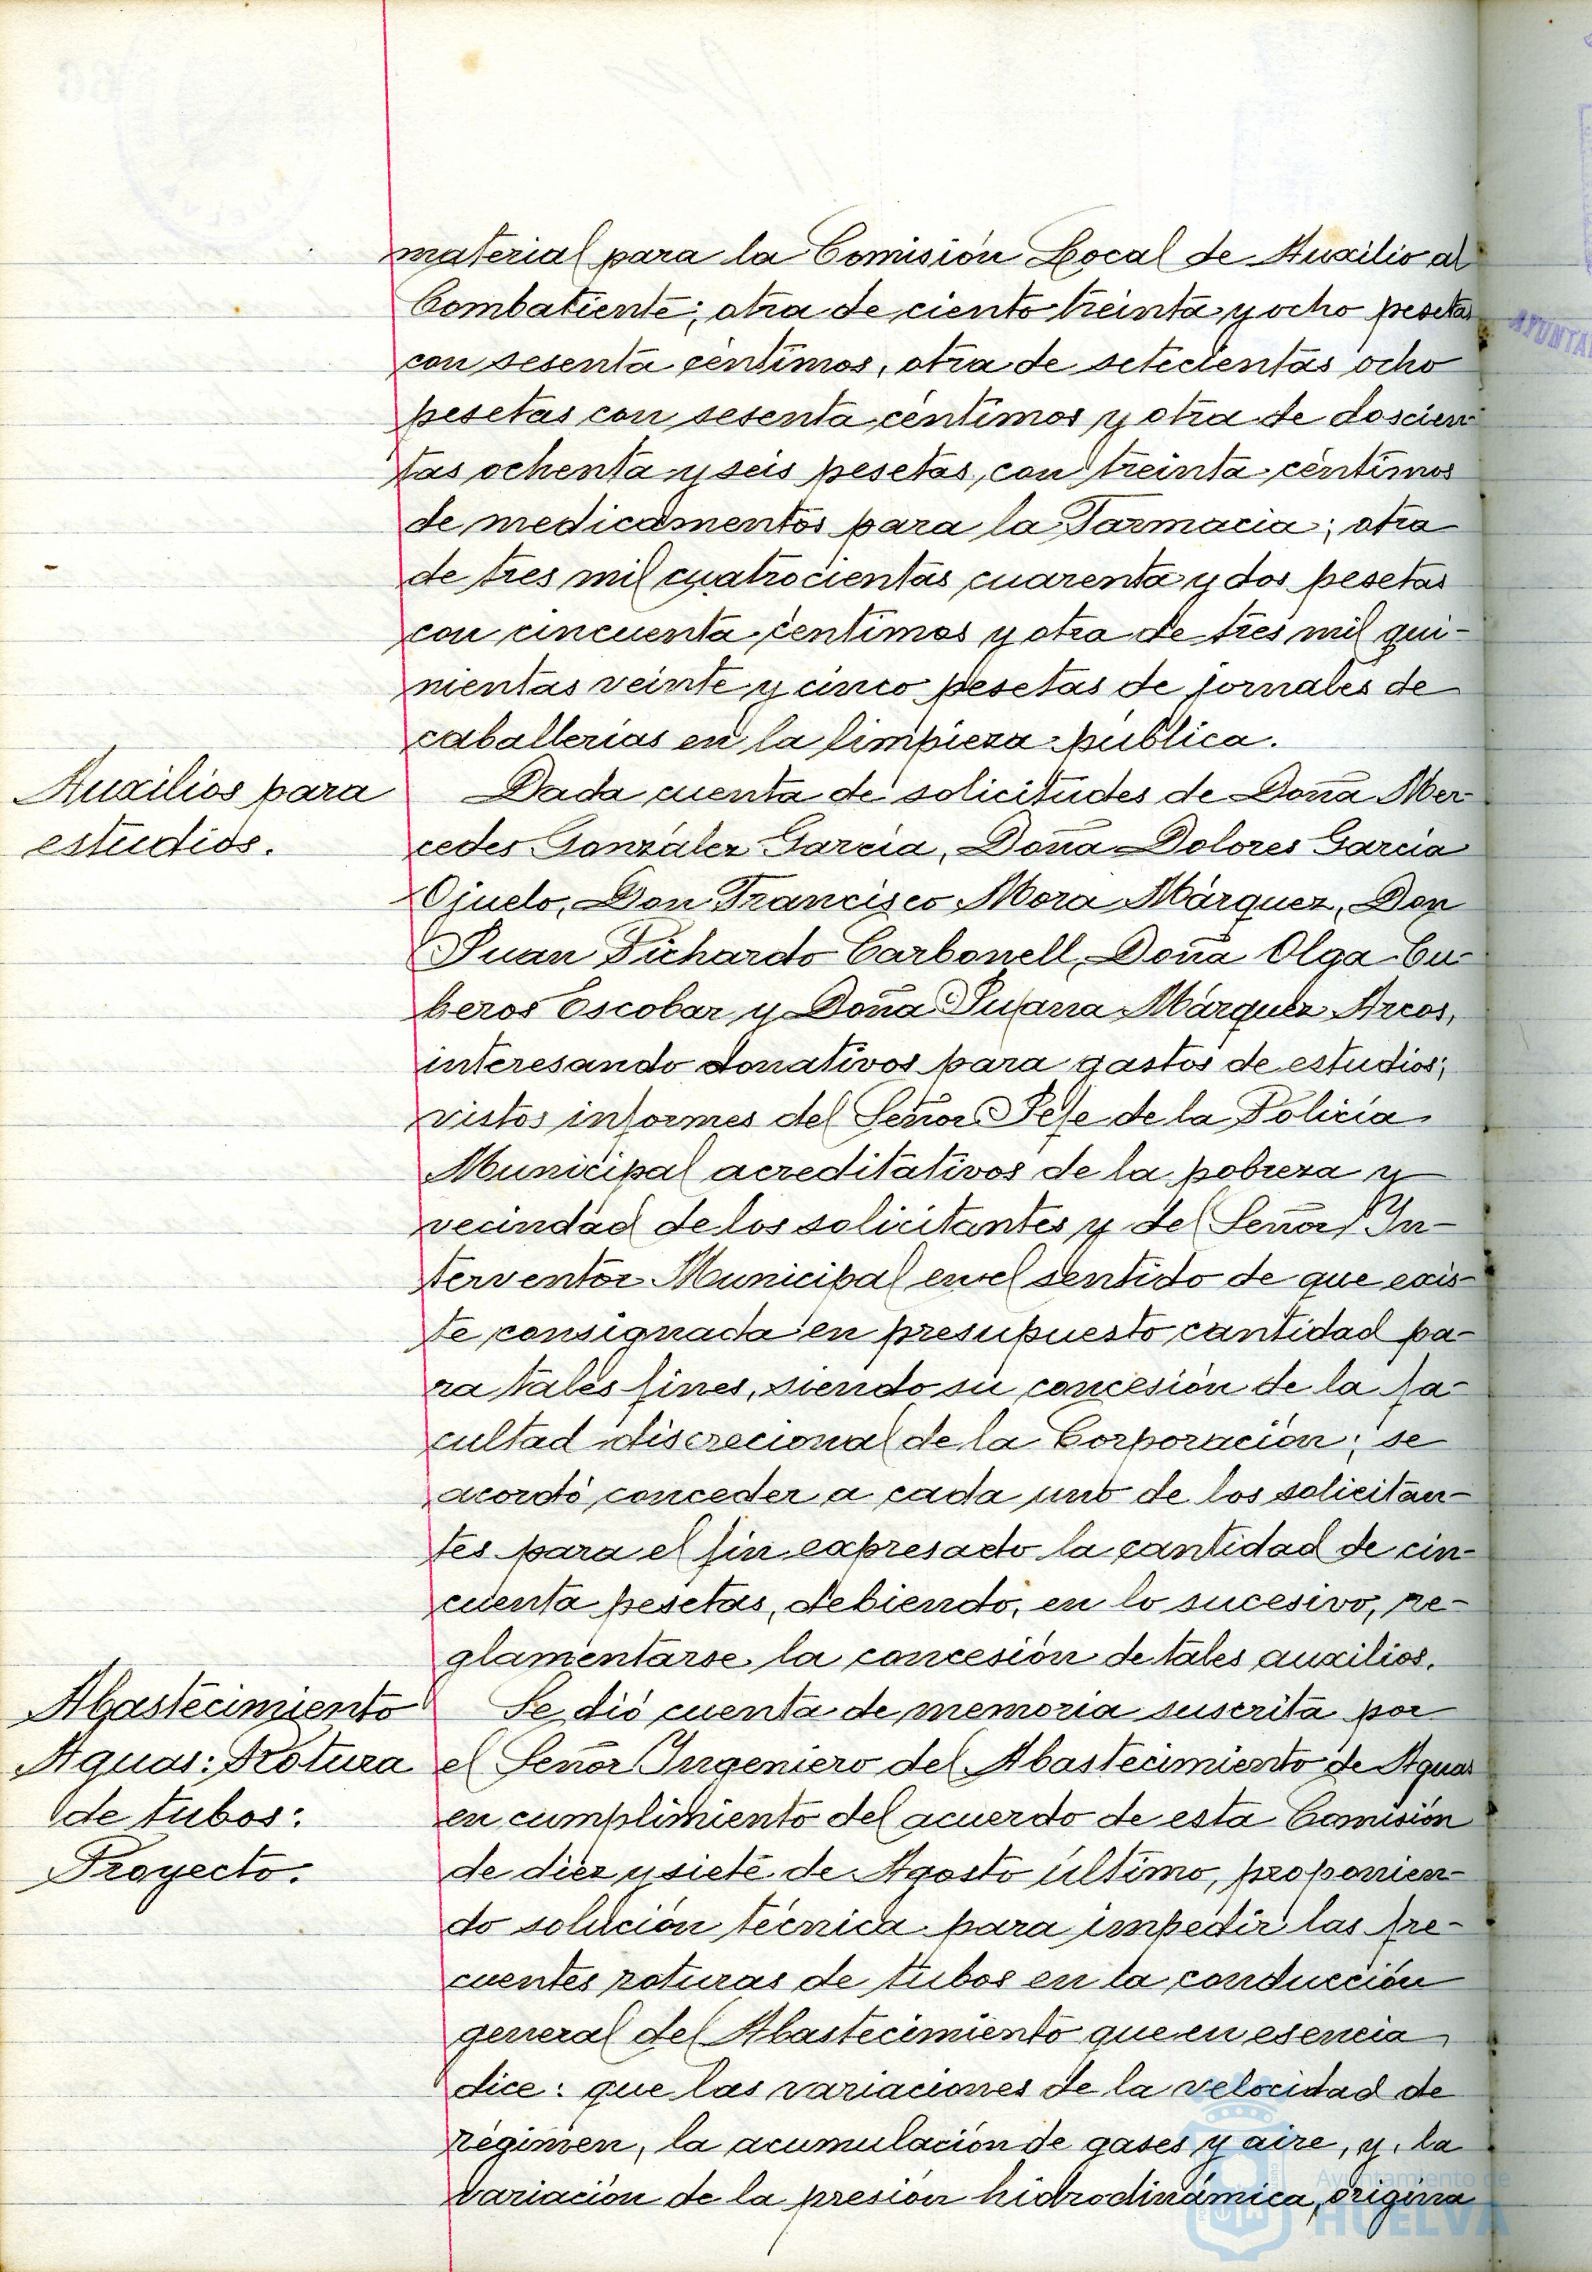 material para la Comisión Local de Auxilio al
Combatiente; otra de ciento treinta y ocho pesetas
con sesenta céntimos, otra de setecientas ocho
pesetas con sesenta céntimos y otra de doscien-
tas ochenta y seis pesetas, con treinta céntimos
de medicamentos para la Farmacia; otra
de tres mil cuatrocientas cuarenta y dos pesetas
con cincuenta céntimos y otra de tres mil qui-
nientas veinte y cinco pesetas de jornales de
caballerías en la limpieza pública.
Auxilios para
estudios.
Dada cuenta de solicitudes de Doña Mer-
cedes González García, Doña Dolores García
Ojuelo, Don Francisco Mora Márquez, Don
Juan Pichardo Carbonell, Doña Olga Cu-
beros Escobar y Doña Juana Márquez Arcos,
interesando donativos para gastos de estudios;
vistos informes del Señor Jefe de la Policía
Municipal acreditativos de la pobreza y
vecindad de los solicitantes y del Señor In-
terventor Municipal en el sentido de que exis-
te consignada en presupuesto cantidad pa-
ra tales fines, siendo su concesión de la fa-
cultad discrecional de la Corporación; se
acordó conceder a cada uno de los solicitan-
tes para el fin expresado la cantidad de cin-
cuenta pesetas, debiendo, en lo sucesivo, re-
glamentarse la concesión de tales auxilios.
Abastecimiento
Aguas: Rotura
de tubos:
Proyecto.
Se dió cuenta de memoria suscrita por
el Señor Ingeniero del Abastecimiento de Aguas
en cumplimiento del acuerdo de esta Comisión
de diez y siete de Agosto último, proponien-
do solución técnica para impedir las fre-
cuentes roturas de tubos en la conducción
general del Abastecimiento que en esencia
dice: que las variaciones de la velocidad de
régimen, la acumulación de gases y aire, y la
variación de la presión hidrodinámica, origina
Ayuntamiento de
HUELVA